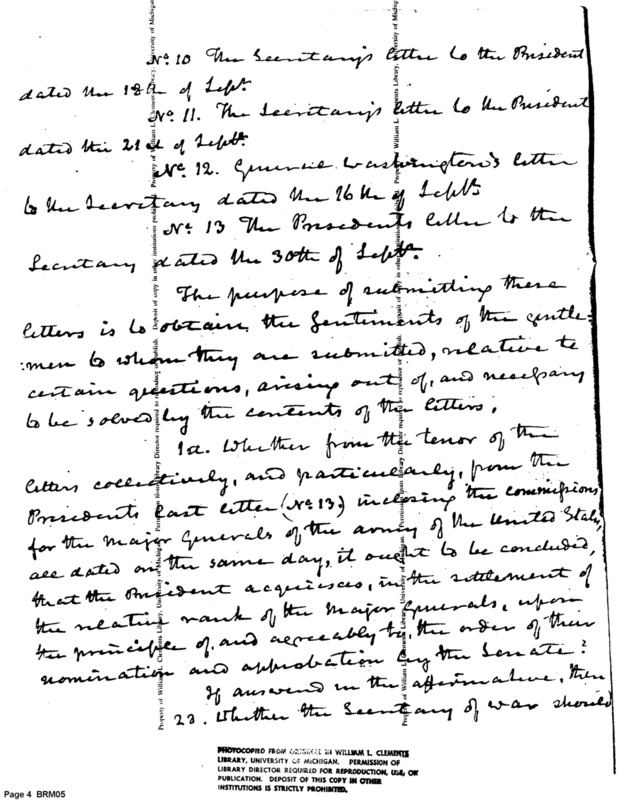 No. 10 The Secretary's letter to the President
dated the 18th of Sept.
No. 11. The Secretary's letter to the President
dated the 21st of Septbr.
No. 12. General Washington's letter
to the Secretary dated the 16th of Septbr
No. 13 The Presidents letter to the
Secretary dated the 30th of Septbr.
The purpose of submitting these
letters is to obtain, the Sentiments of the gentle=
=men to whom they are submitted, relative to
certain questions, arising out of, and necessary
to be solved by the contents of the letters.
1st. Whether from the tenor of the
letters collectively, and particularly, from the
Presidents last letter (No. 13) inclosing the commissions
for the Major Generals of the army of the United States,
all dated on the same day, it ought to be concluded,
that the President acquiesces, in the settlement of
the relative rank of the Major Generals, upon
the principle of, and agreeably to, the order of their
nomination and approbation by the Senate?
If answered in the affirmative, then
2d. Whether the Secretary of war should
Property of William L. Clements Library, University of Michigan. Permission of Library Director required to reproduce or publish. Deposit of copy in other institutions prohibited.
PHOTOCOPIED FROM ORIGINAL IN WILLIAM L. CLEMENTS
LIBRARY, UNIVERSITY OF MICHIGAN. PERMISSION OF
LIBRARY DIRECTOR REQUIRED FOR REPRODUCTION, USE, OR
PUBLICATION. DEPOSIT OF THIS COPY IN OTHER
INSTITUTIONS IS STRICTLY PROHIBITED.
Page 4 BRM05